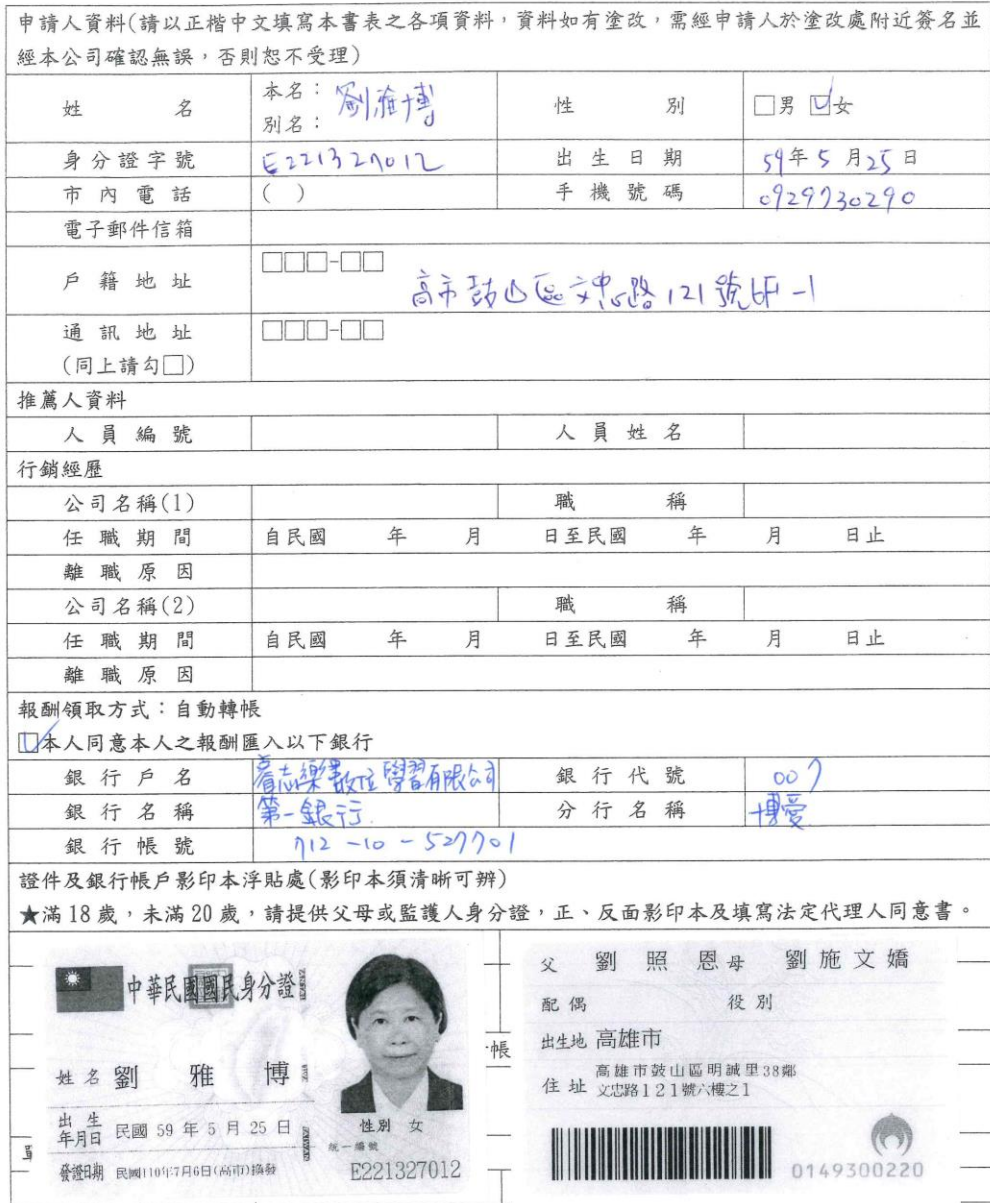 申請人資料(請以正楷中文填寫本書表之各項資料，資料如有塗改，需經申請人於塗改處附近簽名並
經本公司確認無誤，否則恕不受理)
姓 名 本名： 劉雅博 性 別 □男 ☑女
別名：
身分證字號 E221327012 出生日期 59年5月25日
市內電話 ( ) 手機號碼 0929730290
電子郵件信箱
戶籍地址 □□□-□□
高市鼓山區文忠路121號6F-1
通訊地址 □□□-□□
(同上請勾□)
推薦人資料
人員編號 人員姓名
行銷經歷
公司名稱(1) 職 稱
任職期間 自民國 年 月 日至民國 年 月 日止
離職原因
公司名稱(2) 職 稱
任職期間 自民國 年 月 日至民國 年 月 日止
離職原因
報酬領取方式：自動轉帳
☑本人同意本人之報酬匯入以下銀行
銀行戶名 志樂數位學習有限公司 銀行代號 007
銀行名稱 第一銀行 分行名稱 博愛
銀行帳號 712-10-527701
證件及銀行帳戶影印本浮貼處(影印本須清晰可辨)
★滿18歲，未滿20歲，請提供父母或監護人身分證，正、反面影印本及填寫法定代理人同意書。
中華民國國民身分證
姓名 劉雅博
出生年月日 民國59年5月25日
性別 女
統一編號
發證日期 民國110年7月6日(高市)換發
E221327012
帳
父 劉照恩 母 劉施文嬌
配偶 役別
出生地 高雄市
住址 高雄市鼓山區明誠里38鄰
文忠路121號六樓之1
0149300220